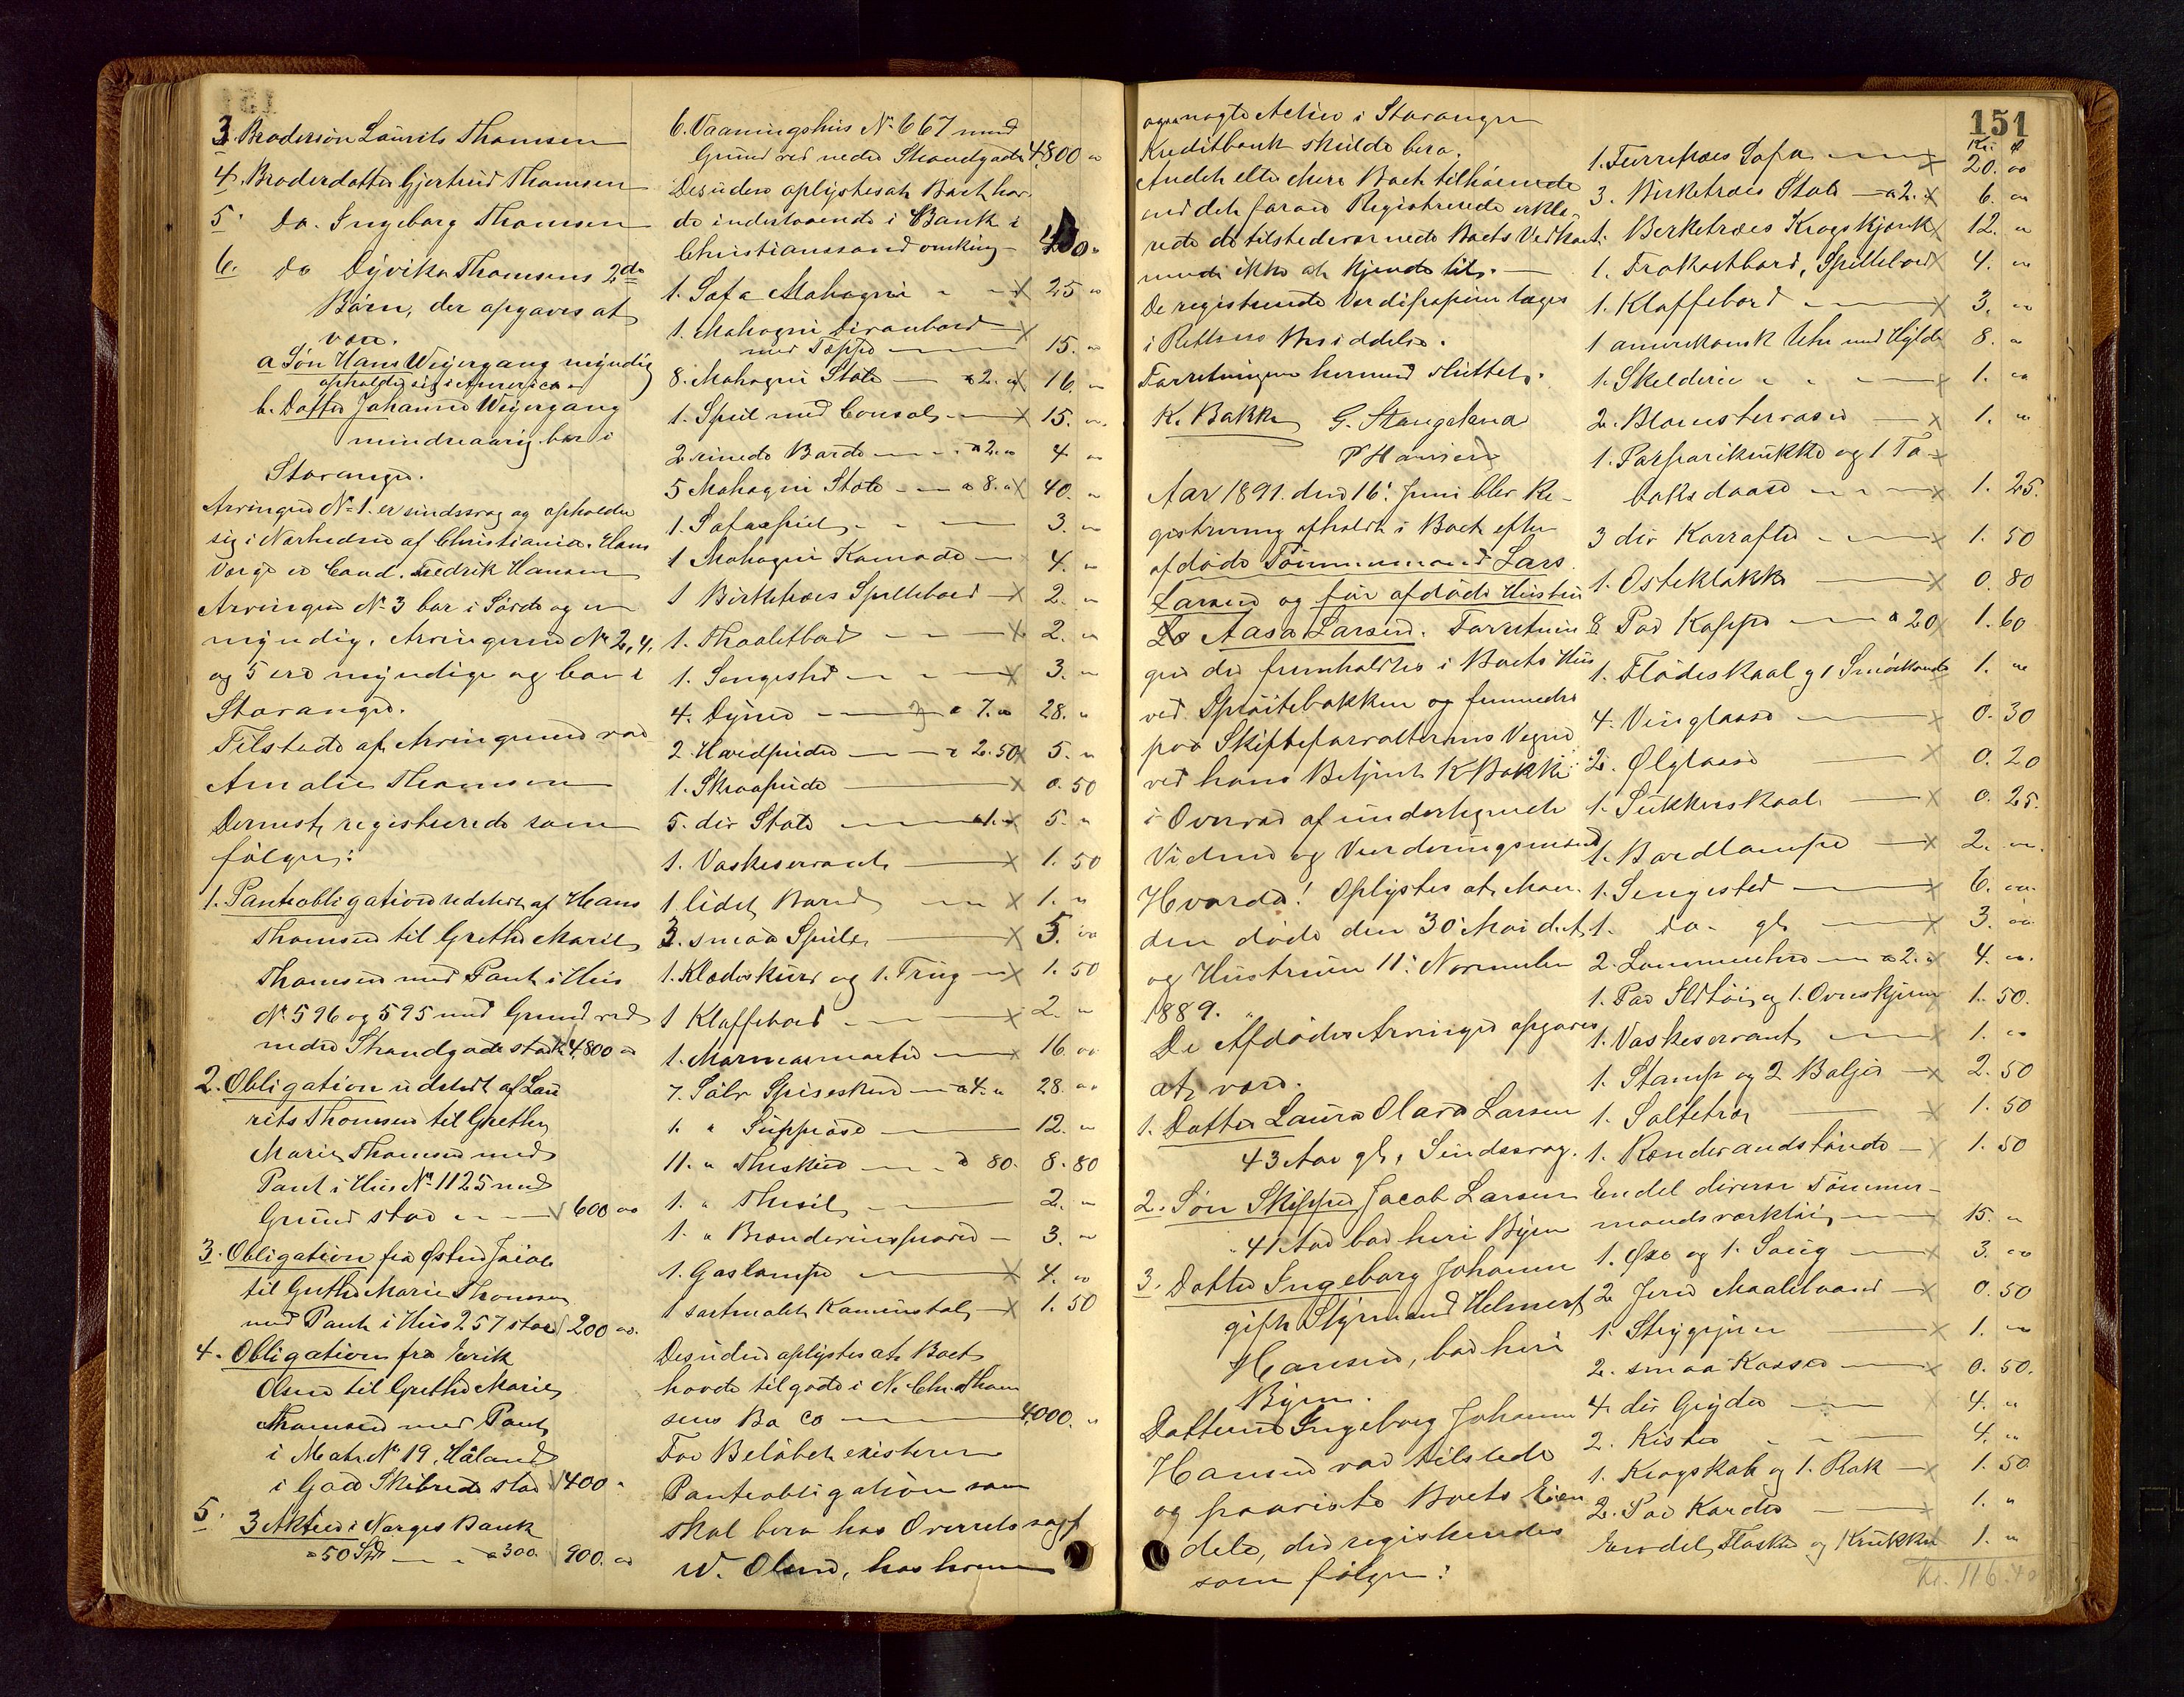 3. Brodersøn Laurits Thomsen
4. Broderdatter Gjertrud Thomsen
5. Do. Ingeborg Thomsen
6. Do Dyvika Thomsens 2de
Børn, der opgaves at
være.
a Søn Hans Weyergang myndig
opholder sig i America
b. Datter Johanne Weyergang
mindreaarig bor i
Stavanger.
Arvingen No 1. er sindssvag og opholder
sig i Nærheden af Christiania. Hans
Værge er Cand. Fredrik Hansen
Arvingen No 3 bor i Søvde og er
myndig. Arvingerne No 2, 4,
og 5 ere myndige og bor i
Stavanger.
Tilstede af Arvingerne var
Amalie Thomsen
Dernest registrerede som
følger:
1. Panteobligation udstedt af Hans
Thomsen til Grethe Marie
Thomsen med Pant i Hus
No 596 og 595 med Grund ved
nedre Strandgade stor 4800 "
2. Obligation udstedt af Lau
rits Thomsen til Grethe
Marie Thomsen med
Pant i Hus No 1125 med
Grund stor 600 "
3. Obligation fra
til Grethe Marie Thomsen
med Pant i Hus 257 stor 200 "
4. Obligation fra Erik
Olsen til Grethe Marie
Thomsen med Pant
i Matr. No 19, Håland
i Skibrede stor 1400 "
5. 3 Aktier i Norges Bank
a 50 Spd a 300. 900. "
6. Vaaningshus No 667 med
Grund ved nedre Strandgade 4800 "
Desuden oplystes at Boet hav
de indestaaende i Bank i
Christianssand omkring 400 "
1. Sofa Mahogni 25 "
1. Mahogni Divanbord
med Teppe 15. "
8. Mahogni Stole a 2. " 16. "
1. Speil med Consol 15. "
2 runde Borde a 2. " 4 "
5 Mahogni Stole a 8. " 40. "
1. Sofaspeil 3. "
1 Mahogni Komode 4. "
1 Birketræes Spillebord 2. "
1. Thoiletbord 2. "
1. Sengested 3. "
4. Dyner a 7. " 28. "
2. Hovedpuder a 2.50 5. "
1. Skraapude 0.50
5. div Stole a 1. " 5. "
1. Vaskeservant 1.50
1 lidet Bord 1. "
3. smaa Speile 5. "
1. Klædeskurv og 1. Trug 1.50
1 Klaffebord 2. "
1. Marmormorter 16. "
7. Sølv Spiseskeer a 4. " 28. "
1. " Suppeøse 12. "
11. " Theskeer a 80. 8.80
1. " Thesil 2. "
1. " 3. "
1. Gaslampe 4. "
1 sortmalet Kurvstol 1.50
Desuden oplystes at Boet
havde tilgode i N. Chr. Thom
sens Bo Co 4000. "
For Beløbet existerer
Panteobligation som
skal bero hos Overretssagf
W. Olsen, hos hvem
ogsaa nogle Aktier i Stavanger
Kreditbank skulde bero.
Andet eller mere Boet tilhørende
end det foran Registrerede erklæ
rede de tilstedeværende Boets Vedkom
mende ikke at kjende til.
De registrerede Verdipapirer tages
i Rettens Besiddelse.
Forretningen hermed sluttet.
K. Bakke G. Stangeland
P Hansen
Aar 1891. den 16. Juni blev Re-
gistrering afholdt i Boet efter
afdøde Tømmermand Lars
Larsen og før afdøde Hustru
Aasa Larsen. Forretnin
gen der fremholdtes i Boets Hus
ved Sprøitebakken og fremmedes
paa Skifteforvalterens Vegne
ved hans Betjent K Bakke
i Overvær af undertegnede
Vidner og Vurderingsmænd
Hvorda! Oplystes at Man
den døde den 30 Mai d.A.
og Hustruen 11. November
1889.
De Afdødes Arvinger opgaves
at være.
1. Datter Laura Olava Larsen
43 Aar gl, Sindssvag.
2. Søn Skipper Jacob Larsen
41 Aar bor heri Byen
3. Datter Ingeborg Johanne
gift Styrmand Helmert
Hansen, bor heri
Byen.
Datteren Ingeborg Johanne
Hansen var tilstede
og paaviste Boets Eien
dele, der registreredes
som følger:
151
Kr. Ø
1. Furretræes Sofa 20. "
3. Birketræes Stole a 2. " 6. "
1. Birketræes Kragskjænk 12. "
1. Frokostbord, Spillebord 4. "
1. Klaffebord 3. "
1 amerikansk Uhr med Hylde 8. "
1. Skilderie 1. "
2. Blomstervaser 1. "
1. Potpourikrukke og 1 To-
baksdaase 1. 25.
3 div Karafler 1. 50
1. Osteklokke 0. 80
8 Par Kopper a 20 1. 60
1. Flødeskaal og 1 Smørkande 1. "
4. Vinglasse 0. 30
2. Ølglasse 0. 20
1. Sukkerskaal 0. 25.
1. Bordlampe 2. "
1. Sengested 6. "
1. Do. gl. 3. "
2. Lommeuhre a 2. " 4. "
1. Par Ildtøi og 1. Ovnskjerm 1. 50.
1. Vaskeservant 1. "
1. Stamp og 2 Baljer 2. 50
1. Saltetræ 1. 50
1. Rendevandstønde 1. 50
Endel diverse Tømmer-
mandsværktøi 15. "
1. Øxe og 1. Saug 3. "
2 Jern Maalebaand 0. 50
1. Strygejern 1. "
2. smaa Kasser 0. 50.
4. div Gryder 4. "
2. Kister 4. "
1. Kragskab og 1. Rok 1. 50
2. Par Karder 1. "
Endel Flasker og Krukker 1. "
Kr. 116.40